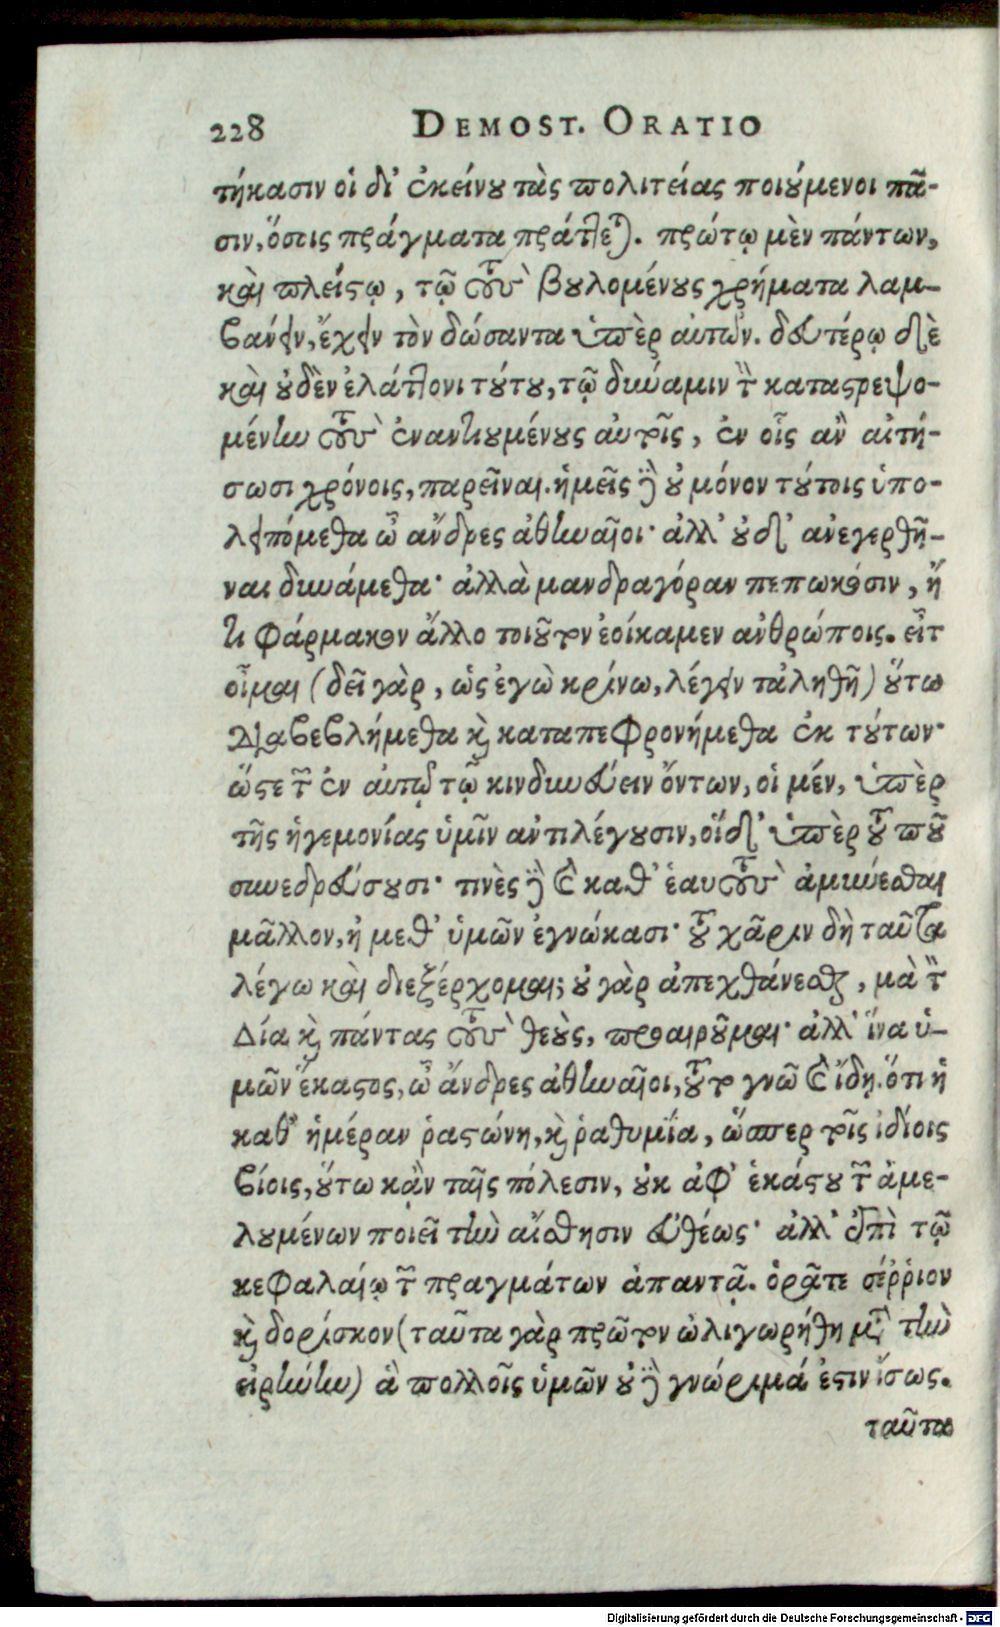 228 DEMOST. ORATIO
τήκασιν οἱ δι' ἐκείνου τὰς πολιτείας ποιούμενοι πᾶ-
σιν, ὅστις πράγματα πράττεται. πρώτῳ μὲν πάντων,
καὶ πλείστῳ, τῷ τοὺς βουλομένους χρήματα λαμ-
βάνειν, ἔχειν τὸν δώσοντα ὑπὲρ αὐτῶν. δευτέρῳ δὲ
καὶ οὐδὲν ἐλάττονι τούτου, τῷ δύναμιν τὴν καταστρεψο-
μένην τοὺς ἐναντιουμένους αὐτοῖς, ἐν οἷς ἂν αἰτή-
σωσι χρόνοις, παρεῖναι. ἡμεῖς δὲ οὐ μόνον τούτοις ὑπο-
λειπόμεθα ὦ ἄνδρες ἀθηναῖοι· ἀλλ' οὐδ' ἀνεγερθῆ-
ναι δυνάμεθα· ἀλλὰ μανδραγόραν πεπωκόσιν, ἤ
τι φάρμακον ἄλλο τοιοῦτον ἐοίκαμεν ἀνθρώποις. εἶτ
οἶμαι (δεῖ γὰρ, ὡς ἐγὼ κρίνω, λέγειν τἀληθῆ) οὕτω
Διαβεβλήμεθα καὶ καταπεφρονήμεθα ἐκ τούτων·
ὥστε τῶν ἐν αὐτῷ τῷ κινδυνεύειν ὄντων, οἱ μέν, ὑπὲρ
τῆς ἡγεμονίας ὑμῖν ἀντιλέγουσιν, οἵδ' ὑπὲρ τοῦ ποῦ
συνεδρεύσουσι· τινὲς δὲ καὶ καθ' ἑαυτοὺς ἀμύνεσθαι
μᾶλλον, ἢ μεθ' ὑμῶν ἐγνώκασι· τοῦ χάριν δὴ ταῦτα
λέγω καὶ διεξέρχομαι; οὐ γὰρ ἀπεχθάνεσθαι, μὰ τὸν
Δία καὶ πάντας τοὺς θεοὺς, προαιροῦμαι· ἀλλ' ἵνα ὑ-
μῶν ἕκαστος, ὦ ἄνδρες ἀθηναῖοι, τοῦτο γνῷ καὶ ἴδῃ. ὅτι ἡ
καθ' ἡμέραν ῥᾳστώνη, καὶ ῥαθυμία, ὥσπερ τοῖς ἰδίοις
βίοις, οὕτω κᾂν ταῖς πόλεσιν, οὐκ ἀφ' ἑκάστου τῶν ἀμε-
λουμένων ποιεῖ τὴν αἴσθησιν εὐθέως· ἀλλ' ἐπὶ τῷ
κεφαλαίῳ τῶν πραγμάτων ἀπαντᾷ. ὁρᾶτε σέῤῥιον
καὶ δορίσκον (ταῦτα γὰρ πρῶτον ὠλιγωρήθη μετὰ τὴν
εἰρήνην) ἃ πολλοῖς ὑμῶν οὐδὲ γνώριμά ἐστιν ἴσως.
ταῦτα
Digitalisierung gefördert durch die Deutsche Forschungsgemeinschaft - DFG